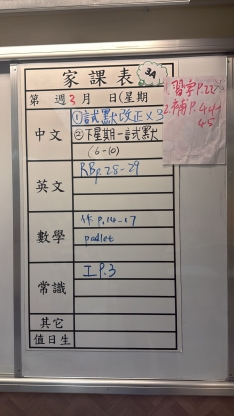 家課表 3A
第 週 3月 日(星期
中文
①試默改正×2
②下星期一試默
(6-10)
習字P.22
2.補P.44-
45
英文
RB p.28-29
數學
作 p.14-17
padlet
常識
工P.3
其它
值日生